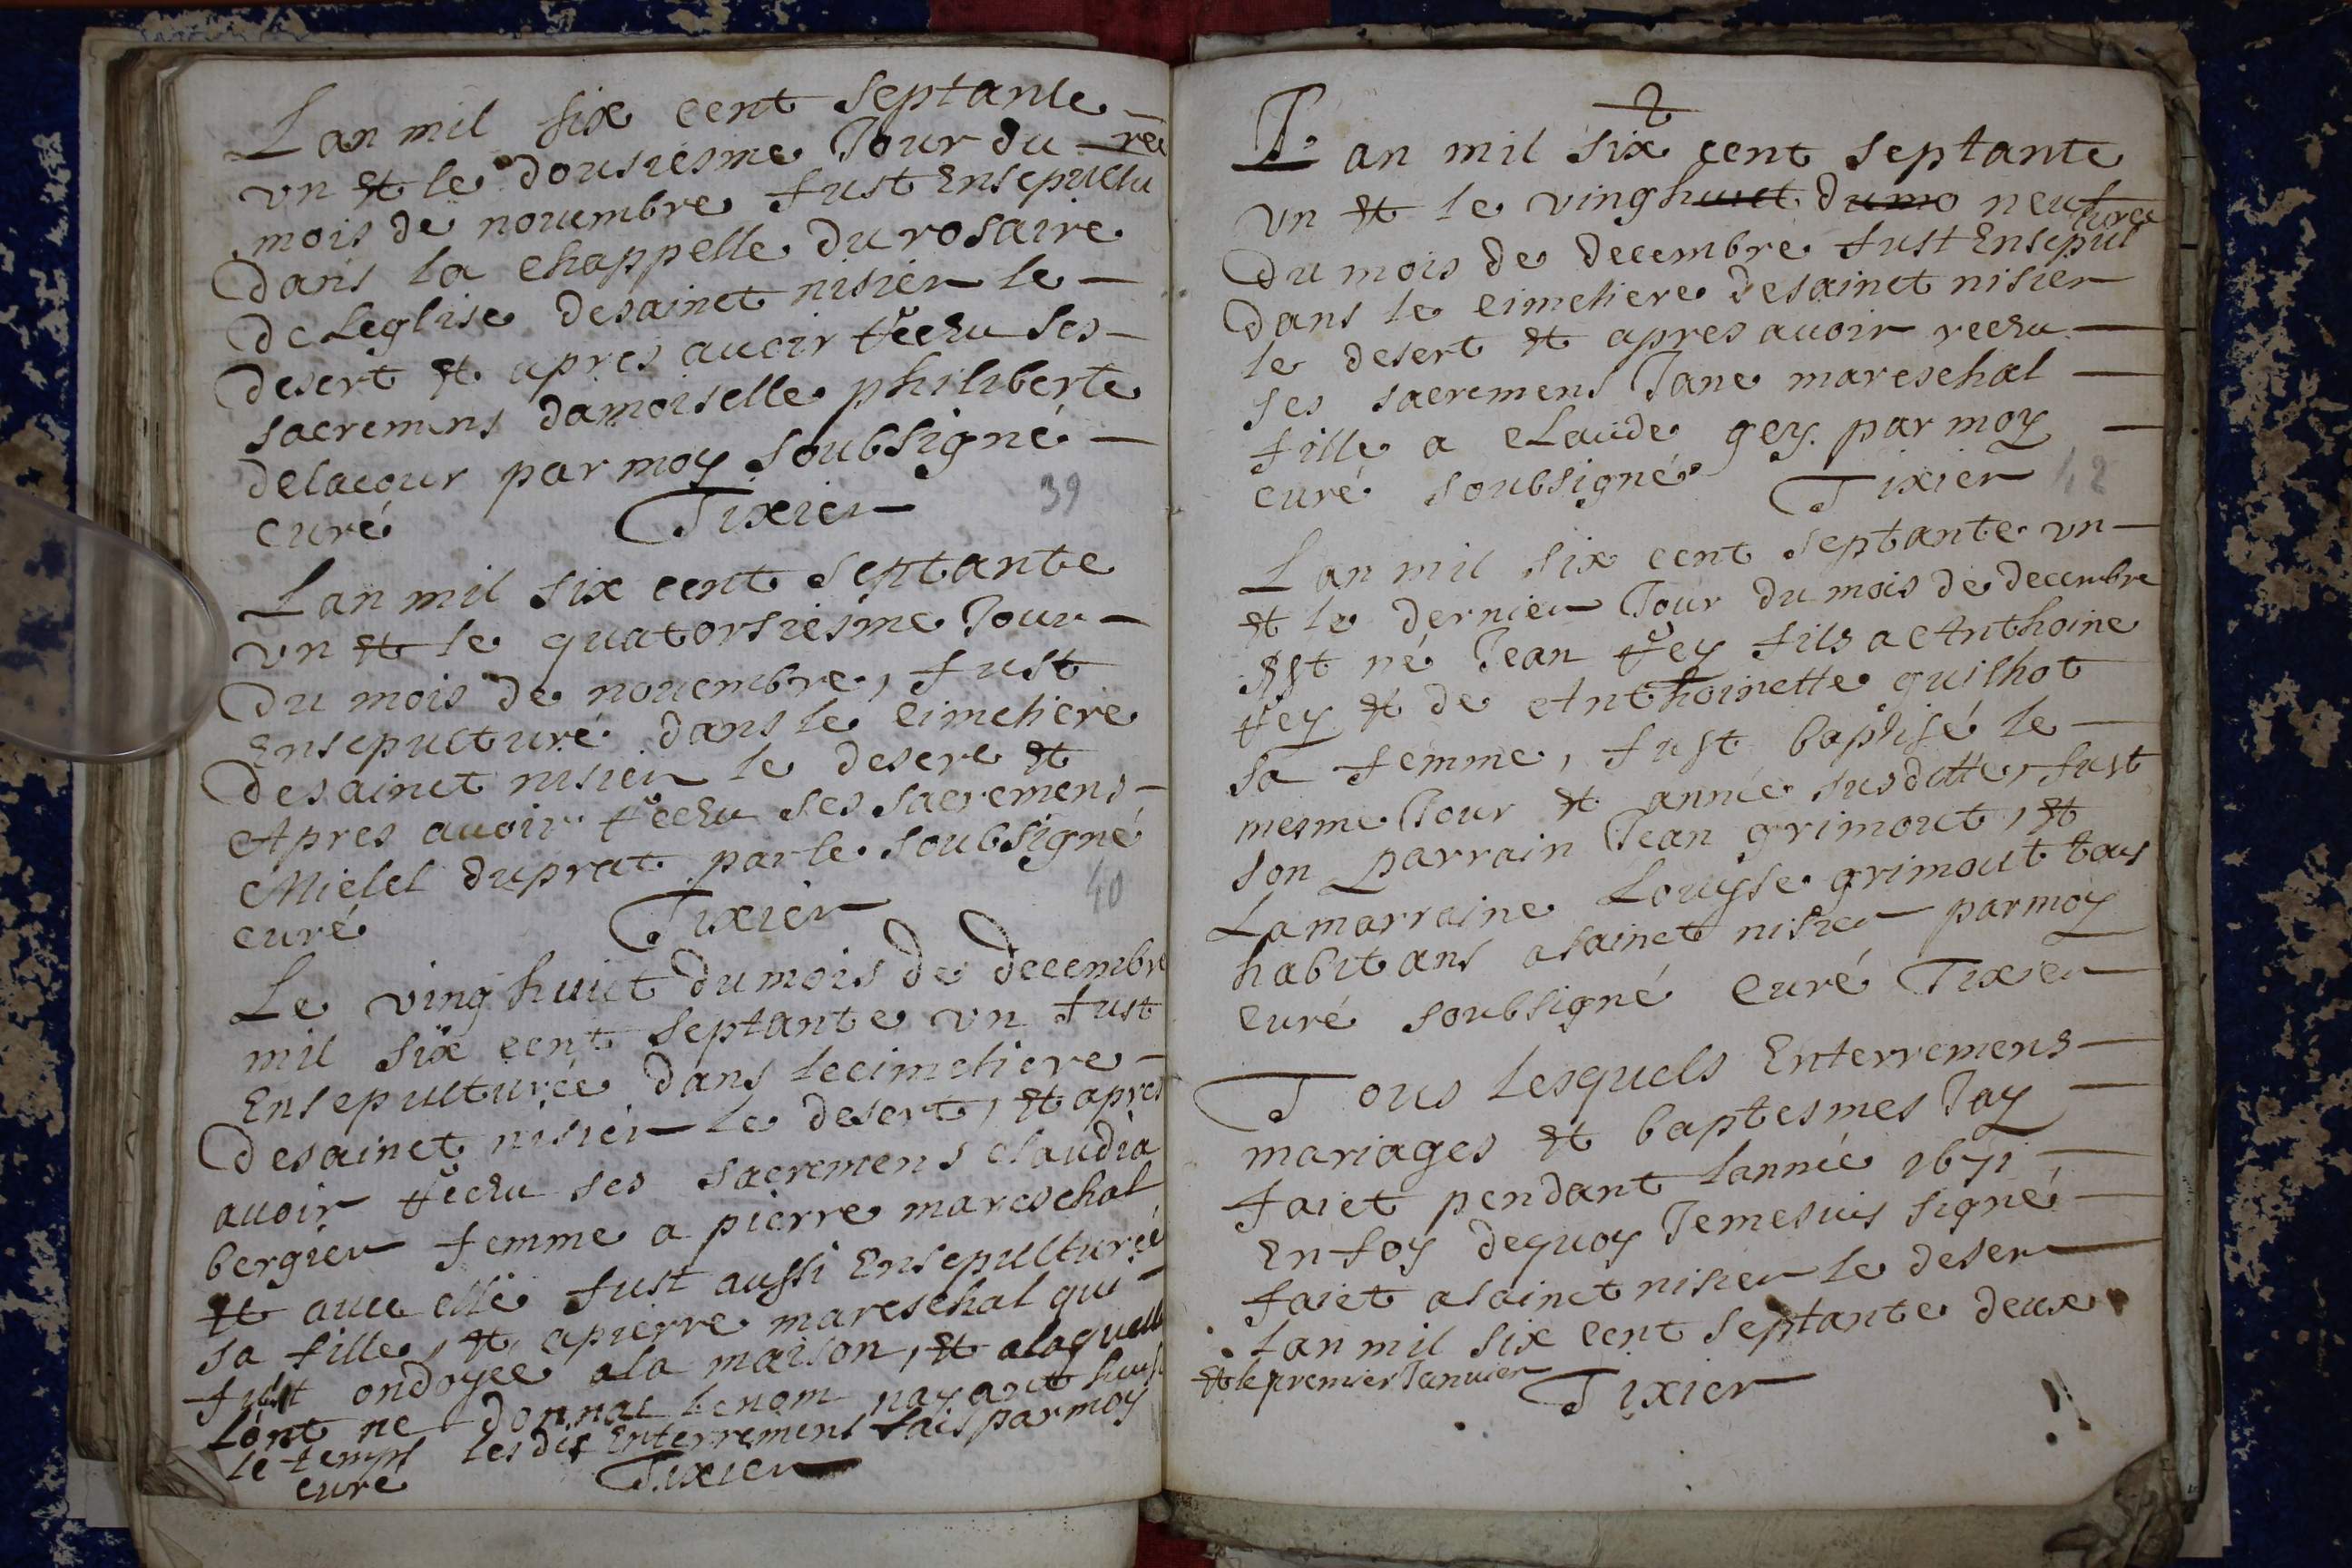 Lan mil six cent septante
vn et le dousiesme Jour du
mois de nouembre fust Ensepultu
rée
dans la chappelle du rosaire
de Leglise desainct nisier le
desert et apres auoir receu ses
sacremens damoiselle philiberte
delacour par moy soubsigné
curé Tixier
39
Lan mil six cent septante
vn et le quatorsiesme Jour
du mois de nouembre, fust
Ensepulturé dans le cimetiere
desainct nisier le desert et
Apres auoir receu ses sacremens
Mielel duprat par le soubsigné
curé Tixier
40
Le ving huict du mois de decembre
mil six cent septante vn fust
Ensepulturée dans lecimetiere
desainct nisier le desert, et apres
auoir receu ses sacremens claudia
bergier femme a pierre mareschal
et auec elle fust aussi Ensepulturée
sa fille, et apierre mareschal qui
fust ondoyee ala maison, et alaquelle
lont ne donnat le nom nayant heust
le temps lesdis Enterremens fais par moy
curé Tixier
Lan mil six cent septante
vn et le ving huict dumo neuf
du mois de decembre fust Ensepul
turée
dans le cimetiere desainct nisier
le desert et apres auoir receu
ses sacremens Jane mareschal
fille a claude gey. par moy
curé soubsigné Tixier
42
Lan mil six cent septante vn
et le dernier Jour du mois de decembre
Est né Jean vey fils a Anthoine
vey et de Anthoinette guilhot
sa femme, fust baptisé le
mesme Jour et année susditte, fust
son parrain Jean grimout, et
La marraine Louysse grimout tous
habitans asainct nisier par moy
curé soubsigné curé Tixier
Tous lesquels Enterremens
mariages et baptesmes Jay
faict pendant lannée 1671
En foy dequoy Jemesuis signé
faict asainct nisier le deser
Lan mil six cent septante deux
et le premier Januier Tixier